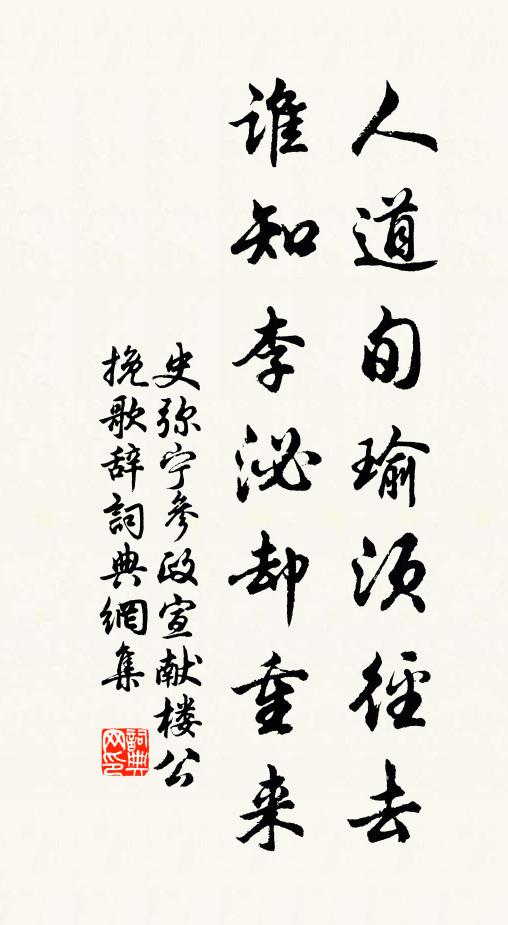 人道旬瑜须径去
谁知李泌却重来
史弥宁参政宣献楼公
挽歌辞詞典網集
詞典网印